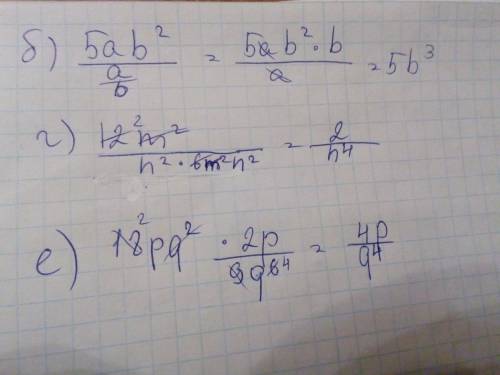 б) 5ab² / (a/b) = 5ab²·b / a = 5b³
г) 12² m² / n²·6m²n² = 2 / n⁴
е) 18² pq² · 2p / 9q⁶ ⁴ = 4p / q⁴